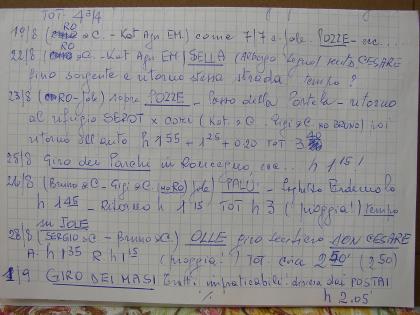 TOT 4 3/4
19/8 (RO e C. - Kat Agn EM.) come 7/7 e fole POZZE - ecc....
22/8 (RO e C. - Kat Agn EM) SELLA (Albergo Legno) CESARE
fino sorgente e ritorno stessa strada tempo?
23/8 (RO - Jole) sopra POZZE - Passo della Portela - ritorno
al rifugio SEROT x (Kat. Gigi e C. NO BRUNO) poi
ritorno all'auto h 1 55 + 1 25 + 0.20 TOT 3 40
25/8 Giro dei Parchi in Roncegno, h 1 15!
26/8 (Bruno e C - Gigi e C (NO RO) Jole) PALÙ - Sepolcro Erdemolo
h 1 45 - Ritorno h 1 15 TOT h 3 (pioggia!) tempo
su JOLE
28/8 (SERGIO e C - Bruno e C) OLLE giro sentiero DON CESARE
A. h 1 35 R h 1 15 (pioggia!) Tot circa 2 50 (2 50)
1/9 GIRO DEI MASI tratti impraticabili! discesa dai POSTAI
h 2.05